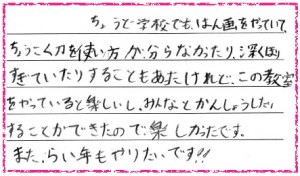 ちょうど学校でも、はん画をやっていて、
ちょうこく刀を使い方が分らなかったり、深くほり
すぎていたりすることもあたけれど、この教室
をやっていると楽しいし、みんなとかんしょうしたり
することができたので楽しかったです。
また、らい年もやりたいです!!